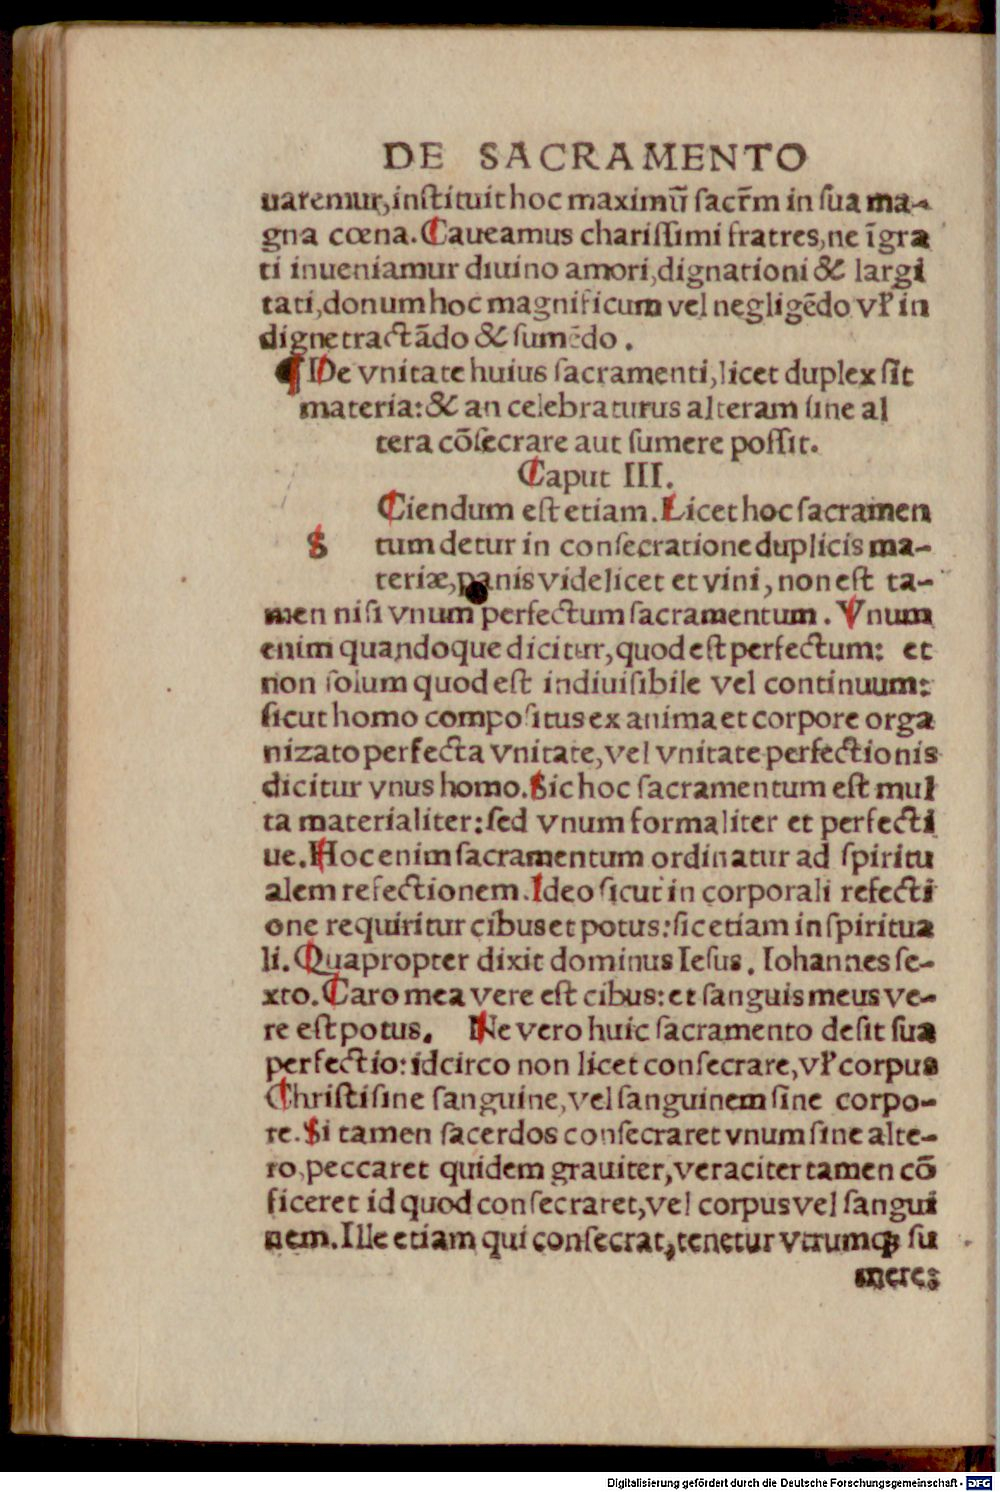 DE SACRAMENTO
uaremur, instituit hoc maximū sacr̄m in sua ma-
gna cœna. Caueamus charissimi fratres, ne īgra
ti inueniamur diuino amori, dignationi & largi
tati, donum hoc magnificum vel negligēdo vł in
digne tractādo & sumēdo.
¶ De vnitate huius sacramenti, licet duplex sit
materia: & an celebraturus alteram sine al
tera cōsecrare aut sumere possit.
Caput III.
Ciendum est etiam. Licet hoc sacramen
S tum detur in consecratione duplicis ma-
teriæ, panis videlicet et vini, non est ta-
men nisi vnum perfectum sacramentum. Vnum
enim quandoque dicitur, quod est perfectum: et
non solum quod est indiuisibile vel continuum:
sicut homo compositus ex anima et corpore orga
nizato perfecta vnitate, vel vnitate perfectionis
dicitur vnus homo. Sic hoc sacramentum est mul
ta materialiter: sed vnum formaliter et perfecti
ue. Hoc enim sacramentum ordinatur ad spiritu
alem refectionem. Ideo sicut in corporali refecti
one requiritur cibus et potus: sic etiam in spiritua
li. Quapropter dixit dominus Iesus. Iohannes se-
xto. Caro mea vere est cibus: et sanguis meus ve-
re est potus. Ne vero huic sacramento desit sua
perfectio: idcirco non licet consecrare, vł corpus
Christi sine sanguine, vel sanguinem sine corpo-
re. Si tamen sacerdos consecraret vnum sine alte-
ro, peccaret quidem grauiter, veraciter tamen cō
ficeret id quod consecraret, vel corpus vel sangui
nem. Ille etiam qui consecrat, tenetur vtrumqꝫ su
mere:
Digitalisierung gefördert durch die Deutsche Forschungsgemeinschaft - DFG